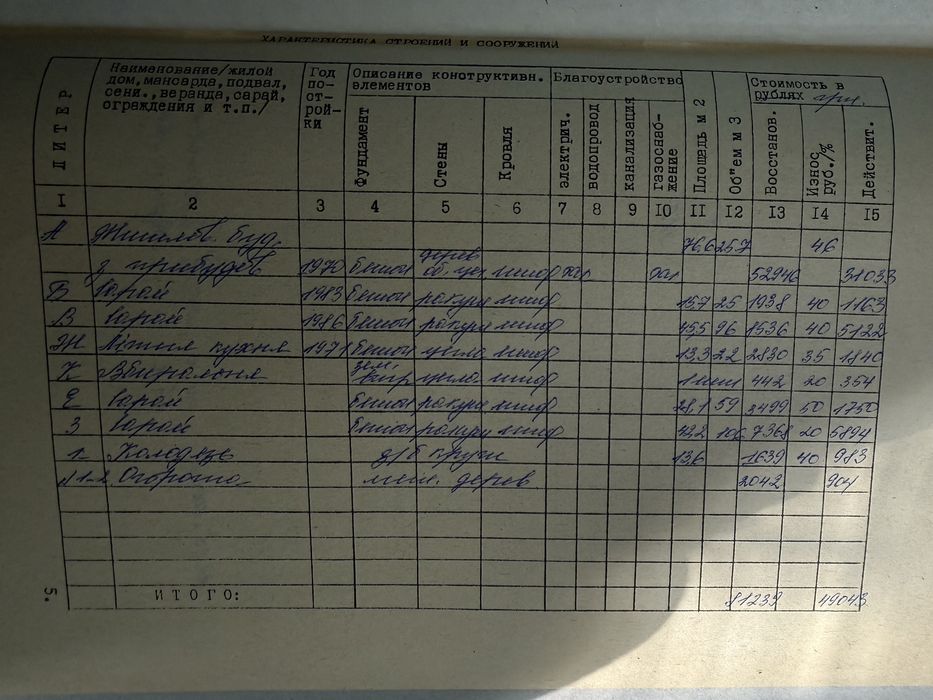 ХАРАКТЕРИСТИКА СТРОЕНИЙ И СООРУЖЕНИЙ
ЛИТЕР
Наименование/жилой дом, мансарда, подвал, сени., веранда, сарай, ограждения и т.п./
Год по-ст-рой-ки
Описание конструктивн. элементов
Благоустройство
Стоимость в рублях грн.
Фундамент
Стены
Кровля
электрич.
водопровод
канализация
газоснаб-жение
Площадь м 2
Об"ем м 3
Восстанов.
Износ руб./%
Действит.
I 2 3 4 5 6 7 8 9 10 11 12 13 14 15
А Житлов. буд. 76,6 257 46
з прибудов 1970 бетон дерев об. цег шифер 52946 31033
Б Сарай 1983 бетон ракуш шиф 15,7 25 1938 40 1163
В Сарай 1986 бетон ракуш шиф 45,5 96 40 5122
Ж Літня кухня 1971 бетон цегла шиф 13,3 22 2830 35 1840
К Вбиральня цегла шиф 442 20 354
Е Сарай бетон ракуш шиф 28,1 59 3499 50 1750
З Сарай бетон ракуш шиф 42,2 106 7368 20 5894
Колодязь з/б 13,6 1639 40 983
N1-2 Огорожа мет. дерев 2042 904
ИТОГО: 81239 49043
5.